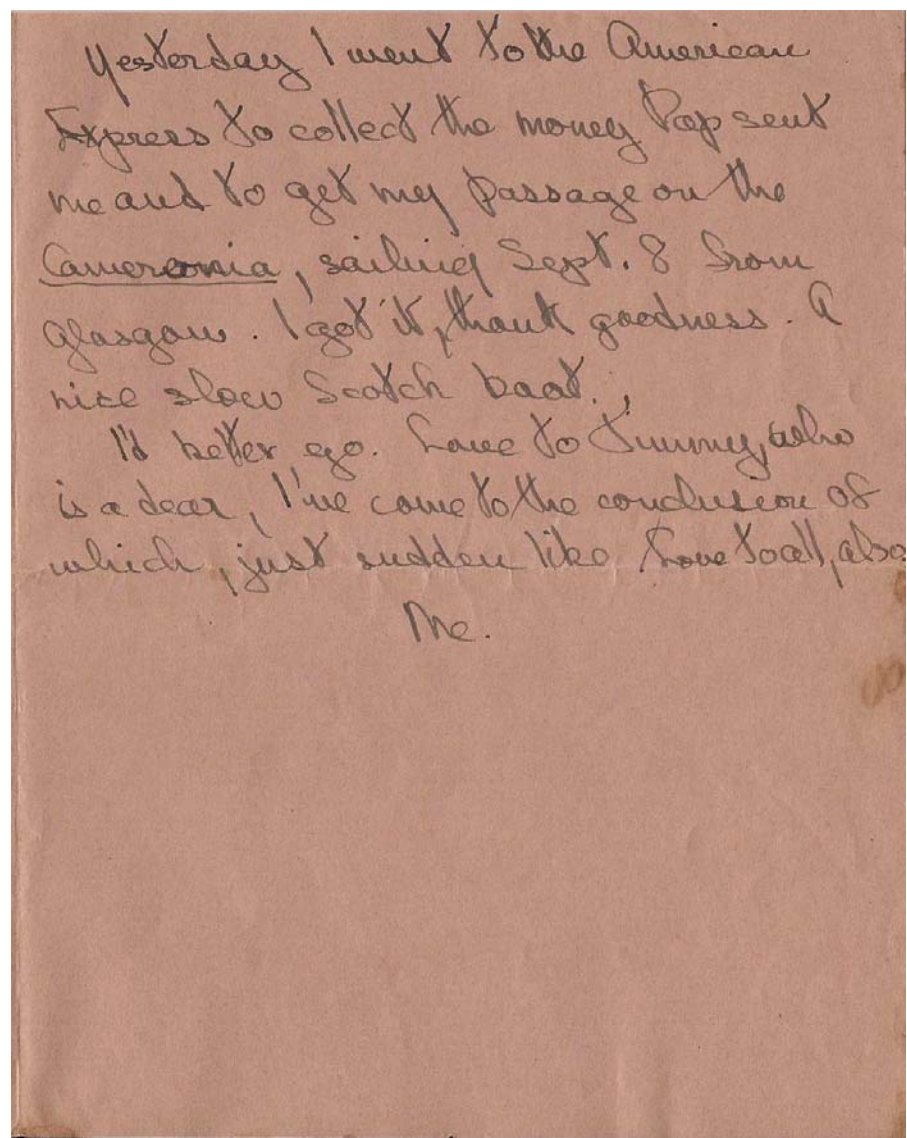 Yesterday I went to the American
Express to collect the money Pop sent
me and to get my passage on the
Cameronia, sailing Sept. 8 from
Glasgow. I got it, thank goodness. A
nice slow Scotch boat.
I'd better go. Love to Jimmy, who
is a dear, I've come to the conclusion of
which, just sudden like. Love to all, also
Me.